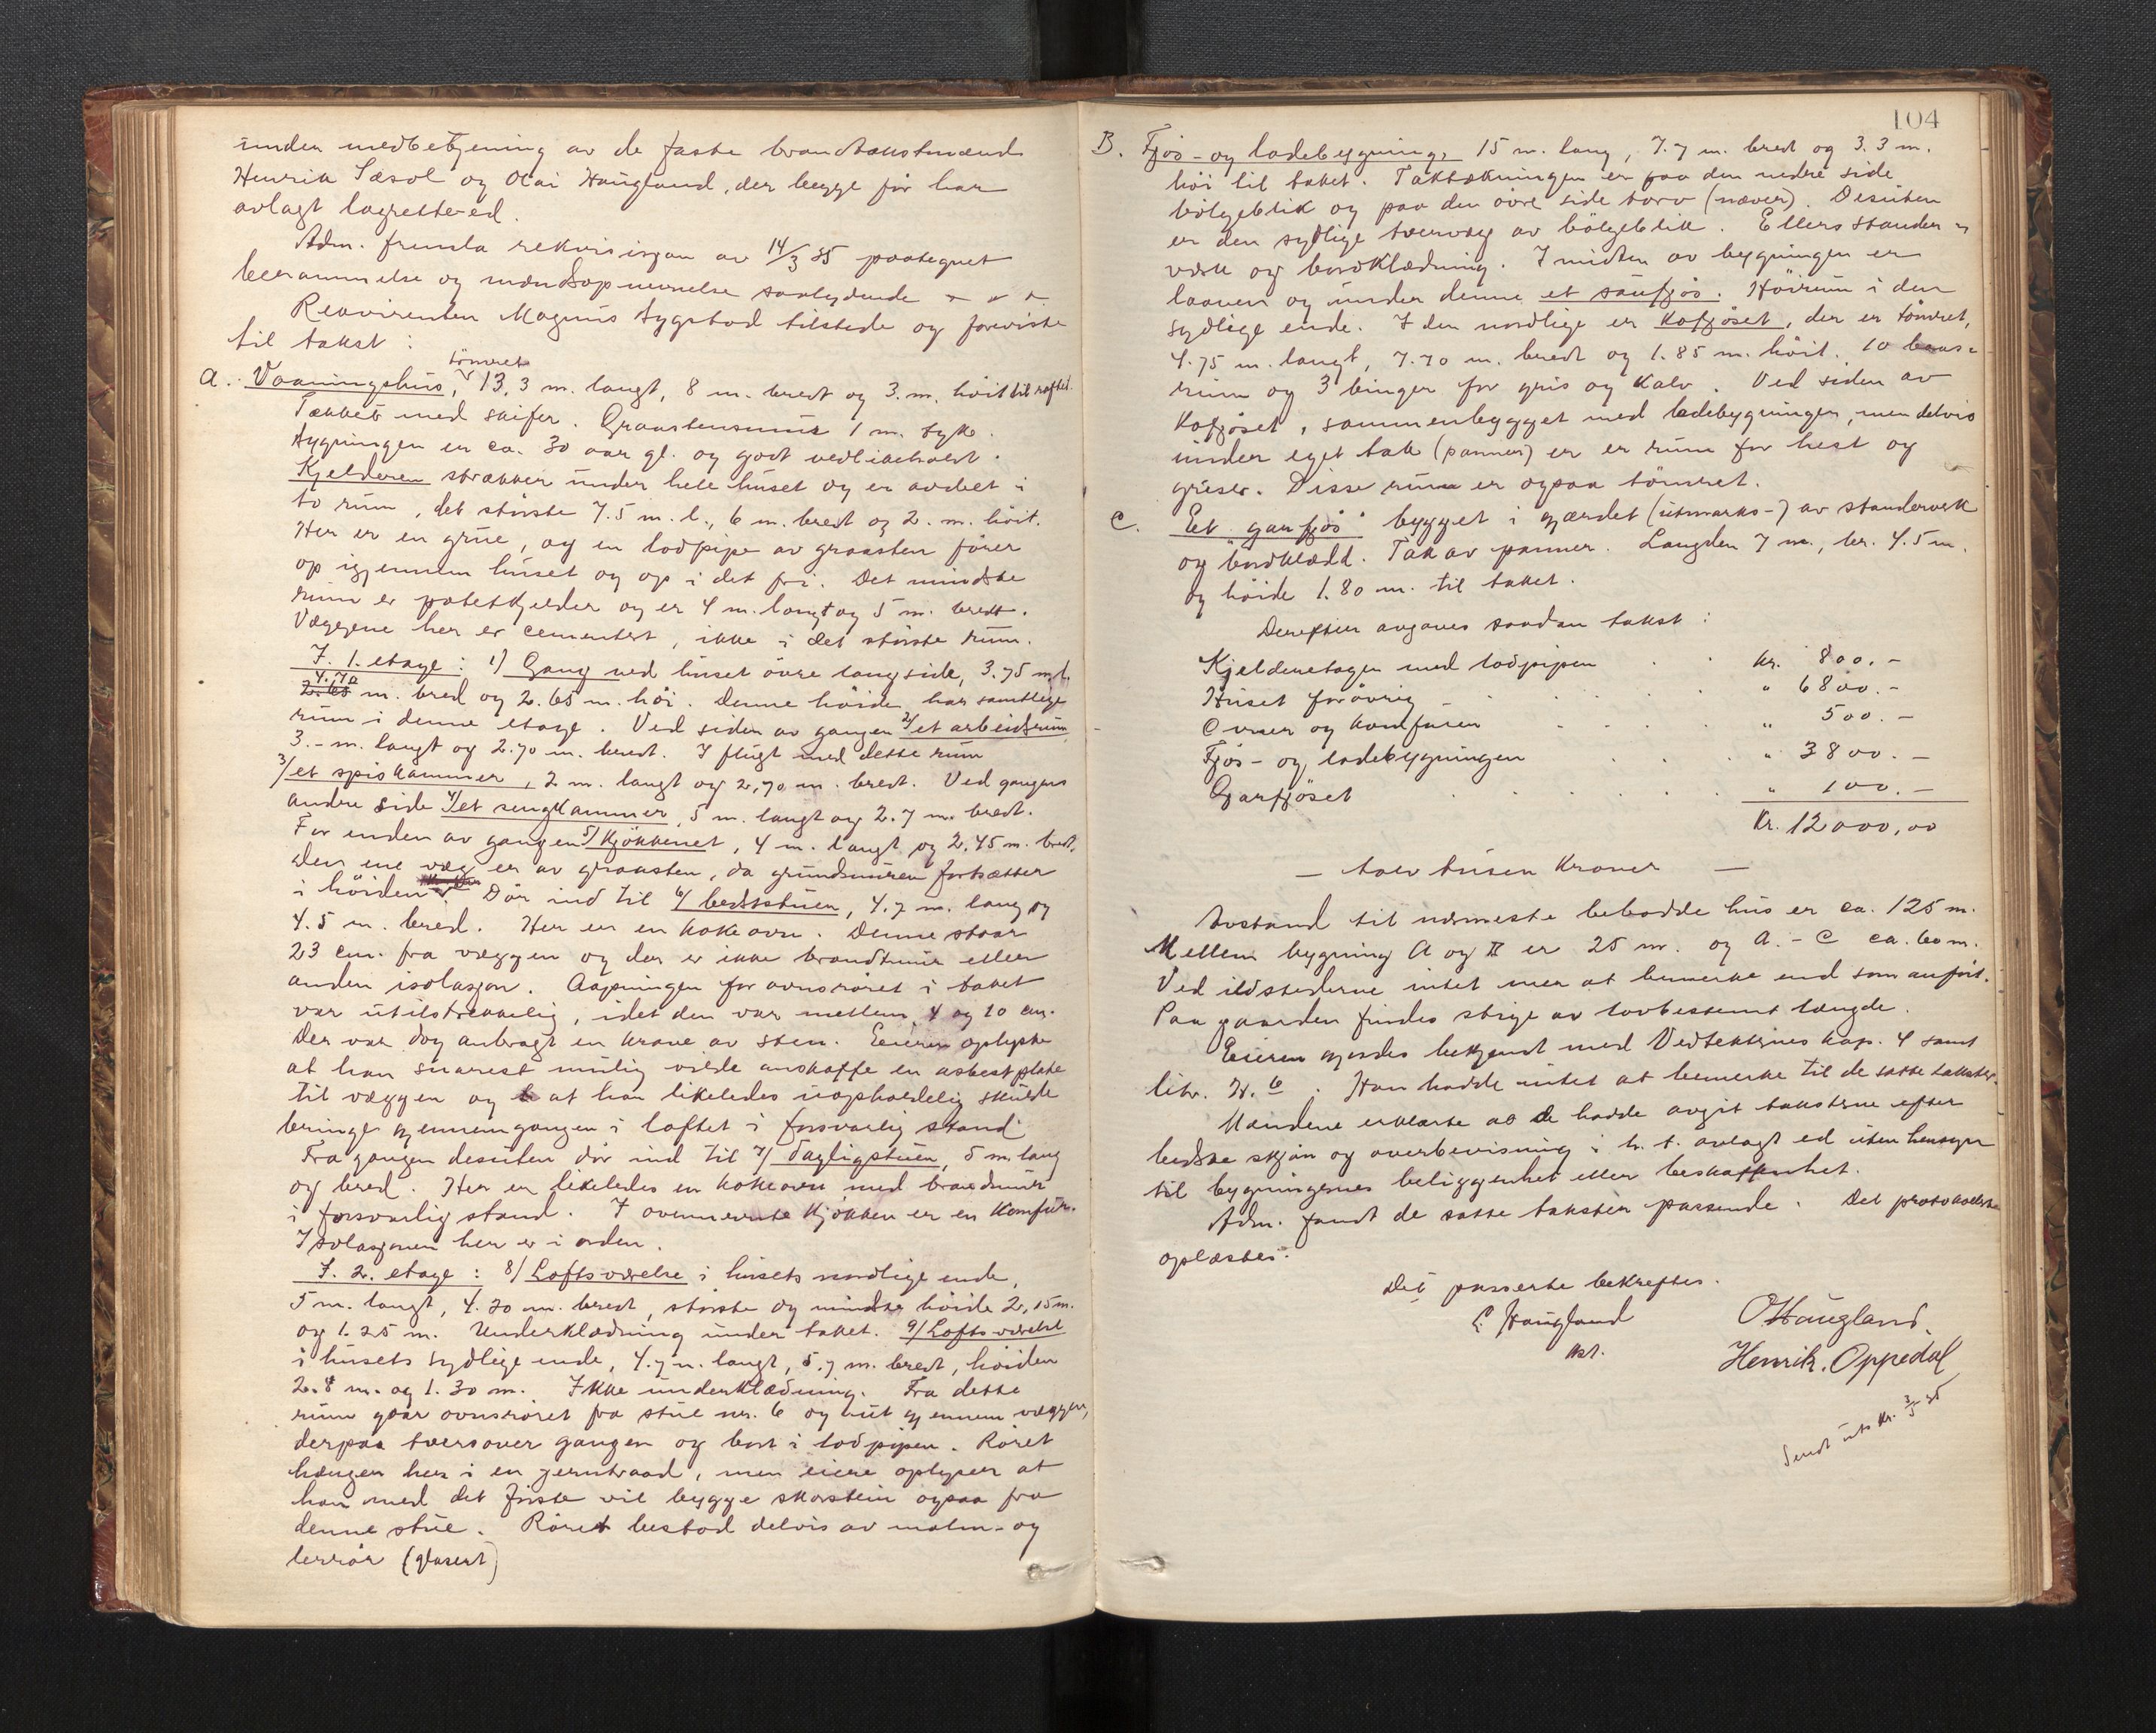 under medbetjening av de faste brandtakstmænd
Henrik Sæsol og Olai Haugland, der begge før har
avlagt lagrette-ed.
Adm. fremla rekvisisjon av 14/3 35 paategnet
berammelse og mændsopnevnelse saalydende
Rekvirenten Magnus Nygstad tilstede og foreviste
til takst:
A. Vaaningshus, tömret 13,3 m. langt, 8 m. bredt og 3. m. höit til raftet.
Tækket med skifer. Graastensmur 1 m. tyk.
Bygningen er ca. 30 aar gl. og godt vedlikeholdt.
Kjelderen strækker under hele huset og er avdelt i
to rum, det störste 7.5 m. l., 6 m. bredt og 2. m. höit.
Her er en grue, og en lodpipe av graasten förer
op igjennem huset og op i det fri. Det mindste
rum er potetkjelder og er 4 m. langt og 5 m. bredt.
Væggene her er cementert, ikke i det störste rum.
I. 1. etage: 1) Gang ved huset övre langside, 3.75 m. l.
4.70 2.65 m. bred og 2.65 m. höi. Denne höide har samtlige
rum i denne etage. Ved siden av gangen 2/ et arbeidsrum
3.- m. langt og 2.70 m. bredt. I flugt med dette rum
3/ et spiskammer, 2 m. langt og 2,70 m. bredt. Ved gangens
andre side 4/ et sengkammer, 5 m. langt og 2.7 m. bredt.
For enden av gangen 5/ kjökkenet, 4 m. langt og 2.45 m. bredt.
Den ene væg er av graasten, da grundmuren fortsætter
i höiden. Dör ind til 6/ bedststuen, 4.7 m. lang og
4.5 m. bred. Her er en kokeovn. Denne staar
23 cm. fra væggen og der er ikke brandmur eller
anden isolasjon. Aapningen for ovnsröret i taket
var utilstrekkelig, idet den var mellem 4 og 10 cm.
Der var dog anbragt en krave av sten. Eieren oplyste
at han snarest mulig vilde anskaffe en asbestplate
til væggen og at han likeledes uopholdelig skulde
bringe gjennemgangen i loftet i forsvarlig stand
Fra gangen desuten dör ind til 7/ dagligstuen, 5 m. lang
og bred. Her er likeledes en kokeovn med brandmur
i forsvarlig stand. I ovennevnte kjökken er en komfur.
Isolasjonen her er i orden.
I. 2. etage: 8/ Loftsværelse i husets nordlige ende,
5 m. langt, 4.20 m. bredt, störste og mindste höide 2,15 m.
og 1.25 m. Underklædning under taket. 9/ Loftsværelse
i husets sydlige ende, 4.7 m. langt, 5.7 m. bredt, höiden
2.8 m. og 1.30 m. Ikke underklædning. Fra dette
rum gaar ovnsröret fra stue nr. 6 og ut gjennem væggen,
derpaa tversover gangen og bort i lodpipen. Röret
hænger her i en jerntraad, men eiere oplyser at
han med det förste vil bygge skorstein ogsaa fra
denne stue. Röret bestod delvis av malm- og
lerrör (glasert)
104
B. Fjös- og ladebygning, 15 m. lang, 7.7 m. bredt og 3.3 m.
höi til taket. Taktækningen er paa den nedre side
bölgeblik og paa den övre side torv (næver). Desuten
er den sydlige tvervæg av bölgeblik. Ellers stander-
værk og bordklædning. I midten av bygningen er
laaven og under denne et saufjös. Höirum i den
sydlige ende. I den nordlige er kofjöset, der er tömret,
4.75 m. langt, 7.70 m. bredt og 1.85 m. höit. 10 baas-
rum og 3 binger for gris og kalv. Ved siden av
kofjöset, sammenbygget med ladebygningen, men delvis
under eget tak (panner) er er rum for hest og
griser. Disse rum er ogsaa tömret.
C. Et "garfjös" bygget i gjærdet (utmarks-) av standerverk
og bordklædd. Tak av panner. Længden 7 m., br. 4.5 m.
og höide 1.80 m. til taket.
Derefter avgaves saadan takst:
Kjelderetagen med lodpipen . . kr. 800.-
Huset forövrig . . . . " 6800.-
Ovner og komfuren . . . " 500.-
Fjös- og ladebygningen . . . " 3800.-
Garfjöset . . . . . " 100.-
Kr. 12000,00
— tolv tusen kroner —
Avstand til nærmeste bebodde hus er ca. 125 m.
Mellem bygning A og B er 25 m. og A.- C ca. 60 m.
Ved ildstederne intet mer at bemerke end som anfört.
Paa gaarden findes stige av lovbestemt længde.
Eieren gjordes bekjent med Vedtekternes kap. 4 samt
litr. H. 6. Han hadde intet at bemerke til de satte takster.
Mændene erklærte at de hadde avgit taksterne efter
bedste skjön og overbevisning i h. t. avlagt ed uten hensyn
til bygningernes beliggenhet eller beskaffenhet.
Adm. fandt de satte takster passende. Det protokollerte
oplæstes.
Det passerte bekreftes.
L. Haugland O Haugland
Henrik. Oppedal
Sendt utskr. 3/5 35